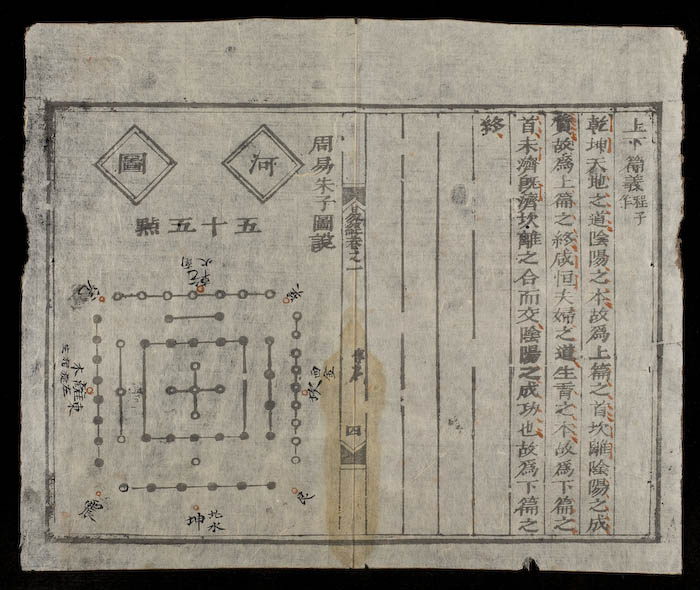 上下篇義程子作
乾坤天地之道陰陽之本故爲上篇之首坎離陰陽之成
質故爲上篇之終咸恒夫婦之道生育之本故爲下篇之
首未濟旣濟坎離之合而交陰陽之成功也故爲下篇之
終
易經卷之一
四
周易朱子圖說
河
圖
五十五點
乾
南
火
坎
西
離
東
木
艮
坤
北水
震